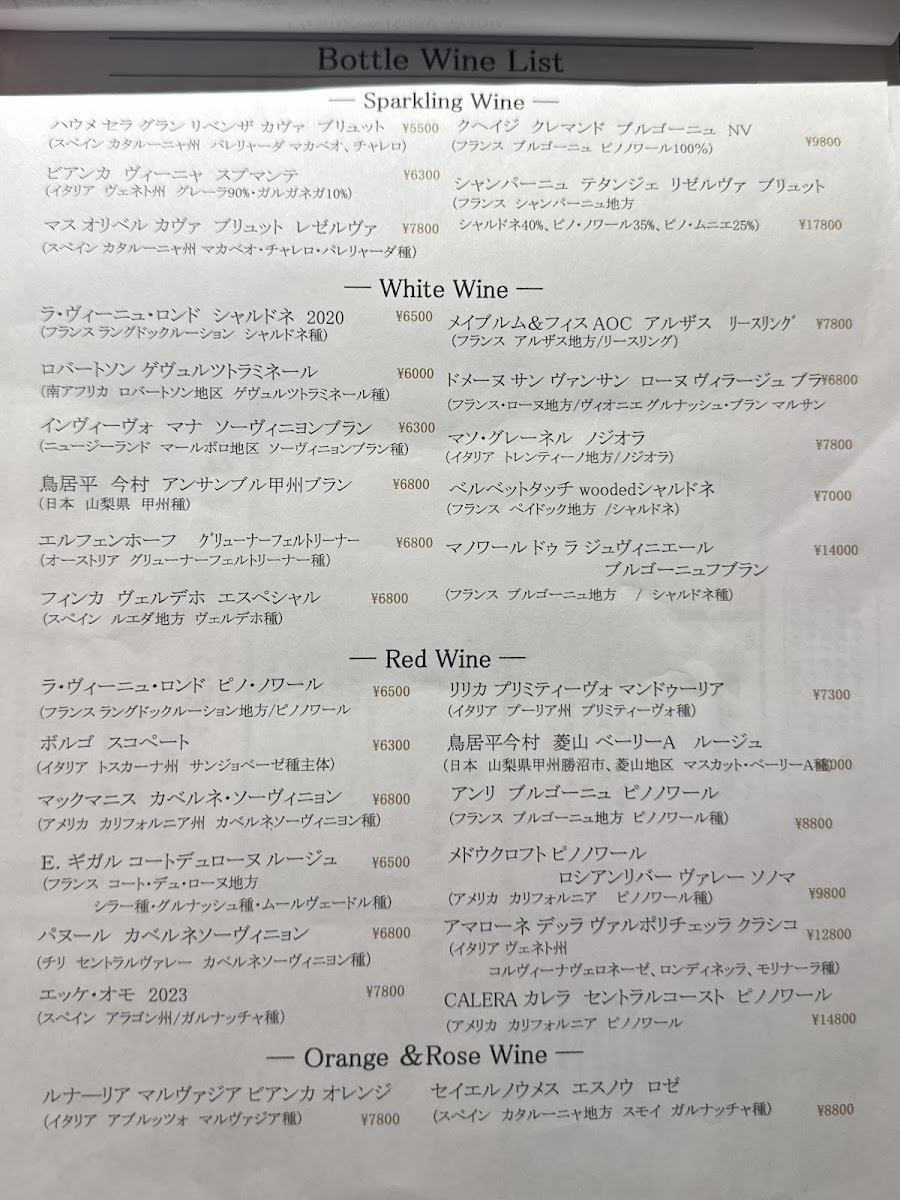 Bottle Wine List
— Sparkling Wine —
ハウメ セラ グラン リベンザ カヴァ ブリュット ¥5500
(スペイン カタルーニャ州 パレリャーダ マカベオ、チャレロ)
ビアンカ ヴィーニャ スプマンテ ¥6300
(イタリア ヴェネト州 グレーラ90%・ガルガネガ10%)
マス オリベル カヴァ ブリュット レゼルヴァ ¥7800
(スペイン カタルーニャ州 マカベオ・チャレロ・パレリャーダ種)
クヘイジ クレマンド ブルゴーニュ NV
(フランス ブルゴーニュ ピノノワール100%) ¥9800
シャンパーニュ テタンジェ リゼルヴァ ブリュット
(フランス シャンパーニュ地方
シャルドネ40%、ピノ・ノワール35%、ピノ・ムニエ25%) ¥17800
— White Wine —
ラ・ヴィーニュ・ロンド シャルドネ 2020 ¥6500
(フランス ラングドックルーション シャルドネ種)
ロバートソン ゲヴュルツトラミネール ¥6000
(南アフリカ ロバートソン地区 ゲヴュルツトラミネール種)
インヴィーヴォ マナ ソーヴィニヨンブラン ¥6300
(ニュージーランド マールボロ地区 ソーヴィニョンブラン種)
鳥居平 今村 アンサンブル甲州ブラン ¥6800
(日本 山梨県 甲州種)
エルフェンホーフ グリューナーフェルトリーナー ¥6800
(オーストリア グリューナーフェルトリーナー種)
フィンカ ヴェルデホ エスペシャル ¥6800
(スペイン ルエダ地方 ヴェルデホ種)
メイブルム&フィス AOC アルザス リースリング ¥7800
(フランス アルザス地方/リースリング)
ドメーヌ サン ヴァンサン ローヌ ヴィラージュ ブラ ¥6800
(フランス・ローヌ地方/ヴィオニエ グルナッシュ・ブラン マルサン
マソ・グレーネル ノジオラ ¥7800
(イタリア トレンティーノ地方/ノジオラ)
ベルベットタッチ woodedシャルドネ ¥7000
(フランス ペイドック地方 /シャルドネ)
マノワール ドゥ ラ ジュヴィニエール ¥14000
ブルゴーニュフブラン
(フランス ブルゴーニュ地方 / シャルドネ種)
— Red Wine —
ラ・ヴィーニュ・ロンド ピノ・ノワール ¥6500
(フランス ラングドックルーション地方/ピノノワール
ボルゴ スコペート ¥6300
(イタリア トスカーナ州 サンジョベーゼ種主体)
マックマニス カベルネ・ソーヴィニョン ¥6800
(アメリカ カリフォルニア州 カベルネソーヴィニヨン種)
E. ギガル コートデュローヌ ルージュ ¥6500
(フランス コート・デュ・ローヌ地方
シラー種・グルナッシュ種・ムールヴェードル種)
パヌール カベルネソーヴィニョン ¥6800
(チリ セントラルヴァレー カベルネソーヴィニヨン種)
エッケ・オモ 2023 ¥7800
(スペイン アラゴン州/ガルナッチャ種)
リリカ プリミティーヴォ マンドゥーリア ¥7300
(イタリア プーリア州 プリミティーヴォ種)
鳥居平今村 菱山 ベーリーA ルージュ
(日本 山梨県甲州勝沼市、菱山地区 マスカット・ベーリーA種)
アンリ ブルゴーニュ ピノノワール
(フランス ブルゴーニュ地方 ピノノワール種) ¥8800
メドウクロフト ピノノワール
ロシアンリバー ヴァレー ソノマ
(アメリカ カリフォルニア ピノノワール種) ¥9800
アマローネ デッラ ヴァルポリチェッラ クラシコ ¥12800
(イタリア ヴェネト州
コルヴィーナヴェロネーゼ、ロンディネッラ、モリナーラ種)
CALERA カレラ セントラルコースト ピノノワール
(アメリカ カリフォルニア ピノノワール ¥14800
— Orange &Rose Wine —
ルナーリア マルヴァジア ビアンカ オレンジ
(イタリア アブルッツォ マルヴァジア種) ¥7800
セイエルノウメス エスノウ ロゼ
(スペイン カタルーニャ地方 スモイ ガルナッチャ種) ¥8800